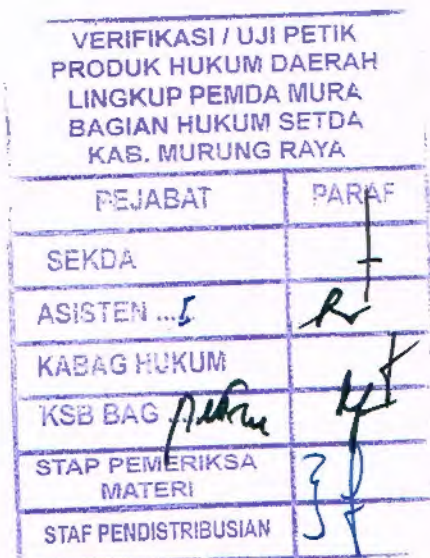 VERIFIKASI / UJI PETIK
PRODUK HUKUM DAERAH
LINGKUP PEMDA MURA
BAGIAN HUKUM SETDA
KAB. MURUNG RAYA
PEJABAT PARAF
SEKDA
ASISTEN ...I
KABAG HUKUM
KSB BAG
STAP PEMERIKSA
MATERI
STAF PENDISTRIBUSIAN